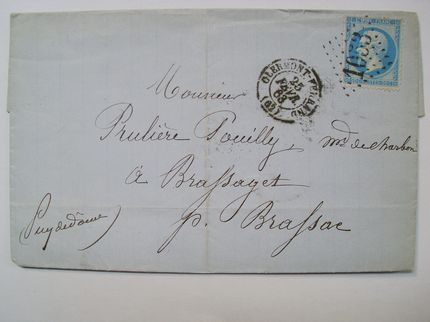 CLERMONT-FERRAND
25
FEVR.
63
(62)
Monsieur
Prulière Pouilly, md de charbon
à Brassaget
Puy de dôme) p. Brassac